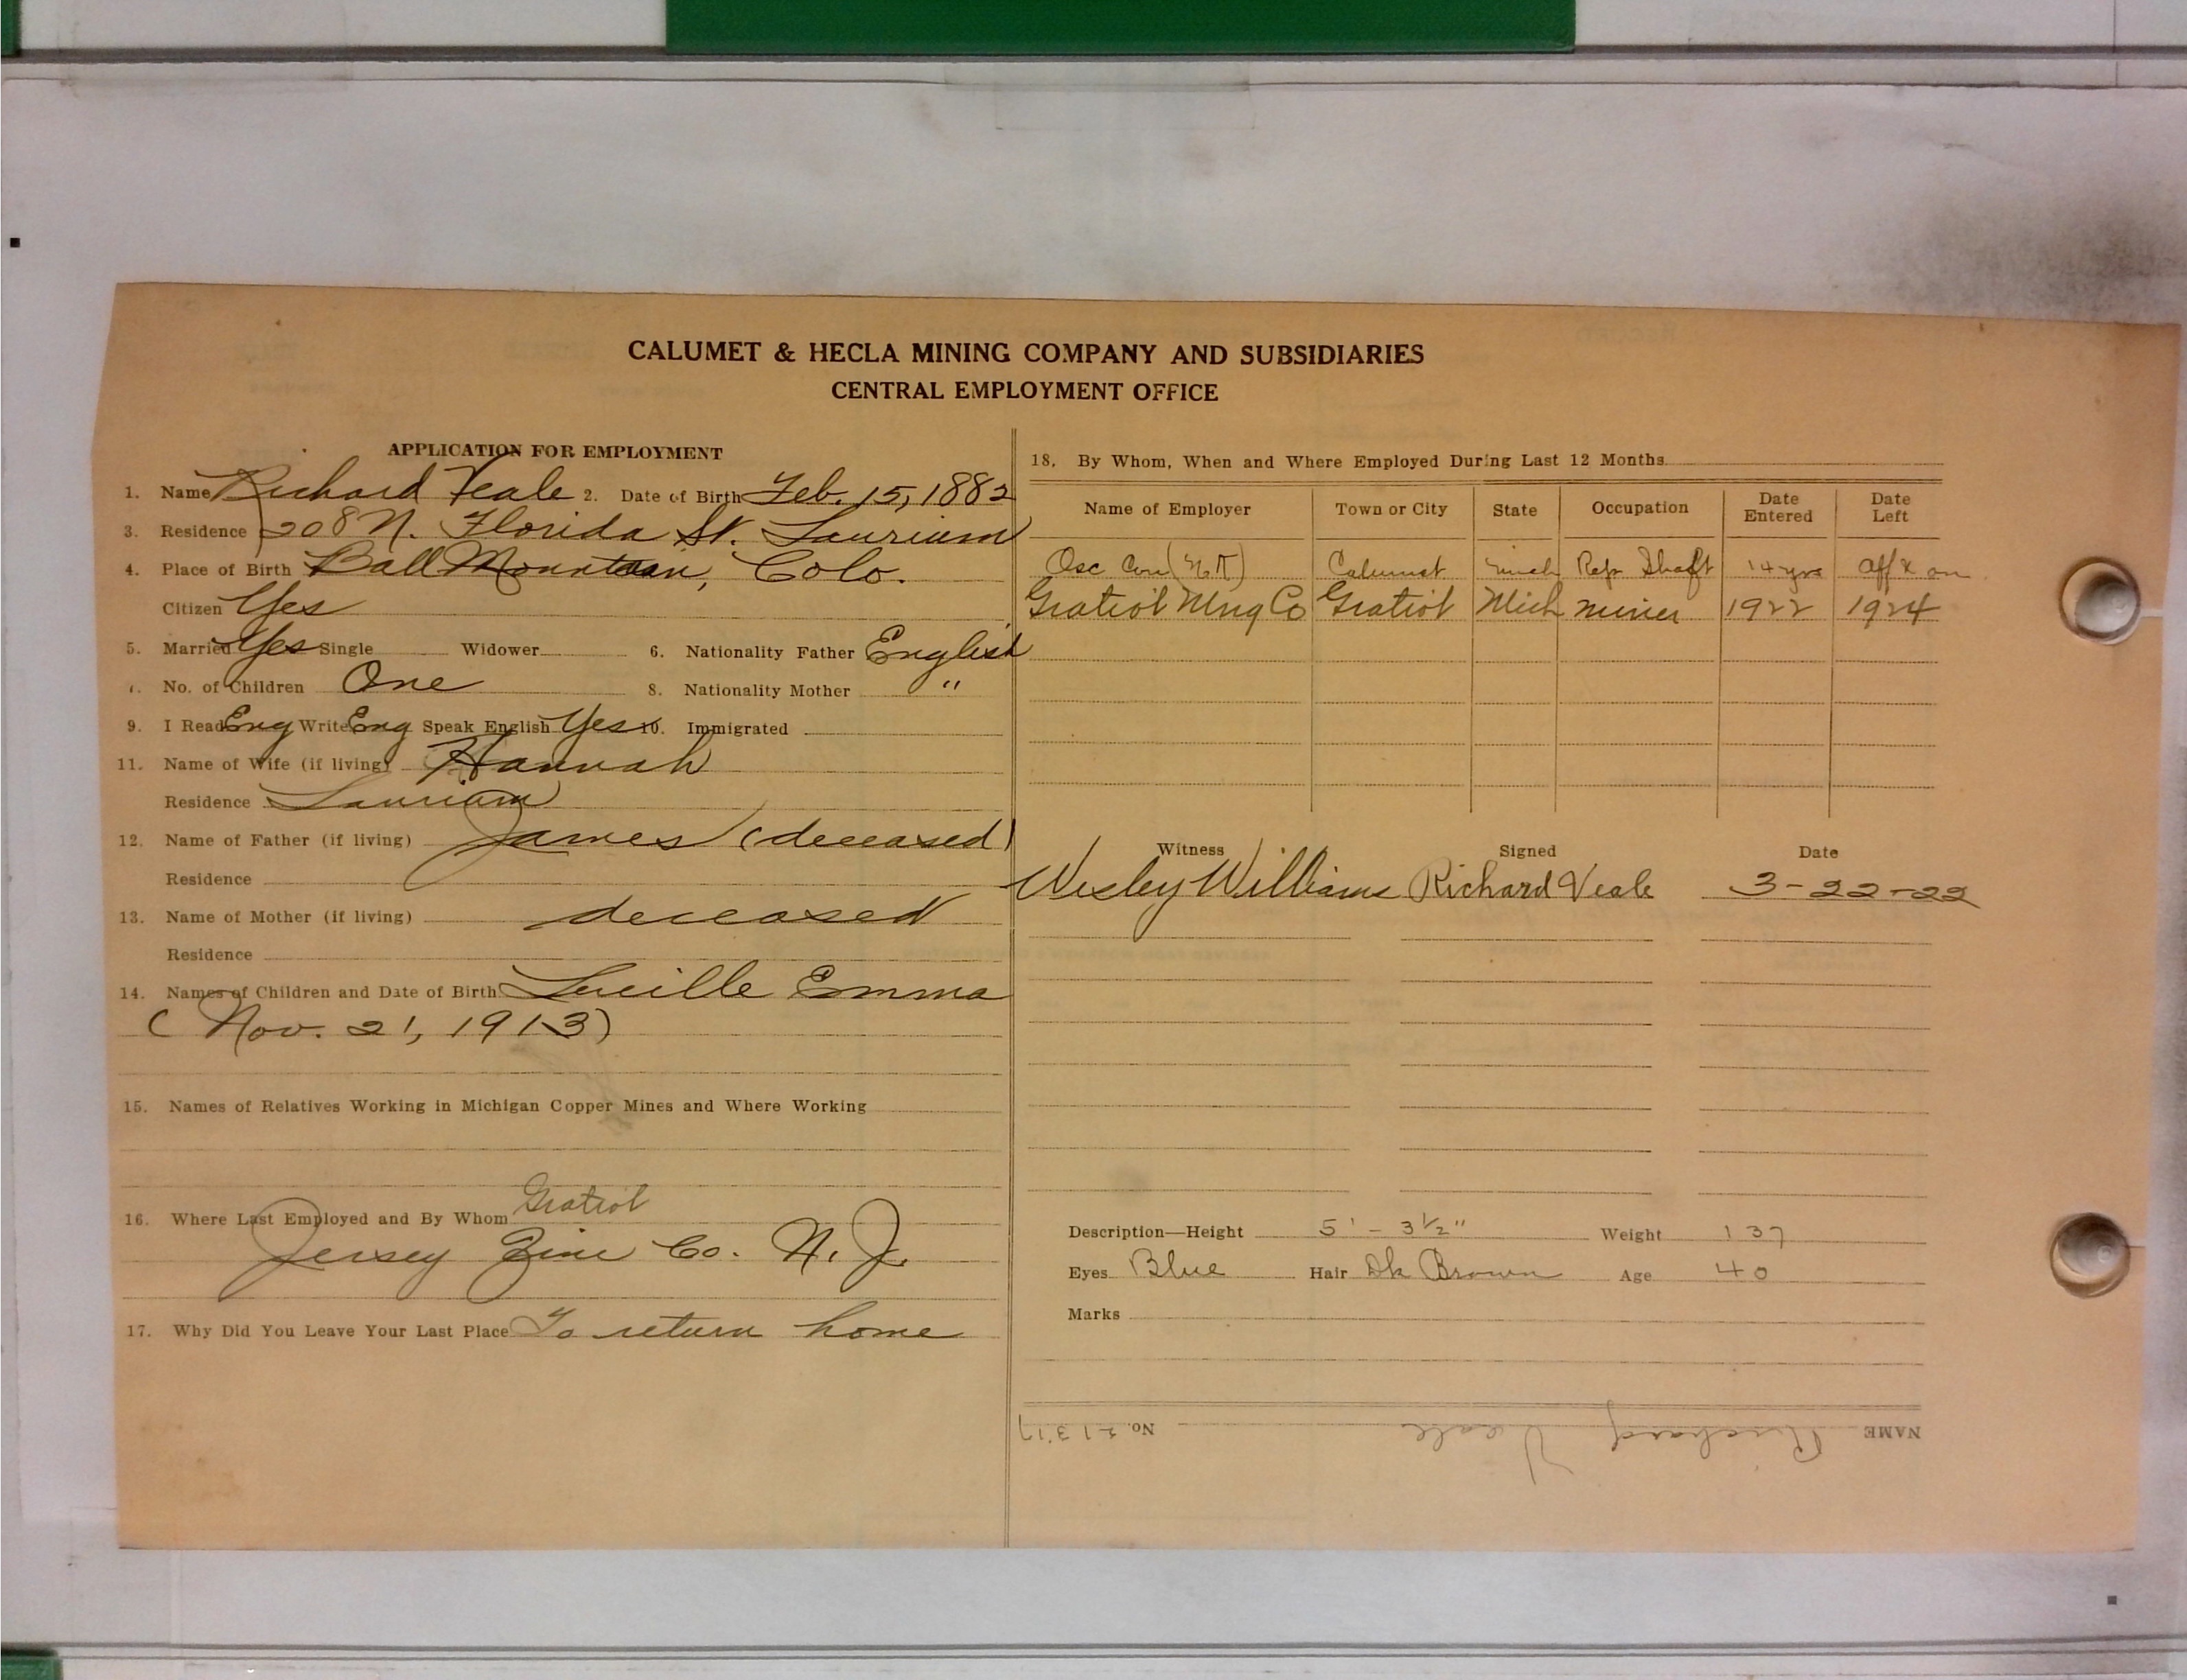 CALUMET & HECLA MINING COMPANY AND SUBSIDIARIES
CENTRAL EMPLOYMENT OFFICE
APPLICATION FOR EMPLOYMENT
1. Name Richard Veale 2. Date of Birth Feb. 15, 1882
3. Residence 208 N. Florida St. Laurium
4. Place of Birth Ball Mountain, Colo.
Citizen Yes
5. Married Yes Single Widower 6. Nationality Father English
7. No. of Children One 8. Nationality Mother "
9. I Read Eng Write Eng Speak English Yes 10. Immigrated
11. Name of Wife (if living) Hannah
Residence Laurium
12. Name of Father (if living) James (deceased)
Residence
13. Name of Mother (if living) deceased
Residence
14. Names of Children and Date of Birth Lucille Emma
(Nov. 21, 1913)
15. Names of Relatives Working in Michigan Copper Mines and Where Working
16. Where Last Employed and By Whom Gratiot
Jersey Zinc Co. N. J.
17. Why Did You Leave Your Last Place To return home
18. By Whom, When and Where Employed During Last 12 Months
Name of Employer Town or City State Occupation Date Entered Date Left
Osc Con Calumet Mich Rep Shaft 14 yrs off & on
Gratiot Mng Co Gratiot Mich miner 1922 1924
Witness Signed Date
Wesley Williams Richard Veale 3-22-22
Description—Height 5' - 3 1/2" Weight 137
Eyes Blue Hair Dk Brown Age 40
Marks
NAME Richard Veale No. 21317